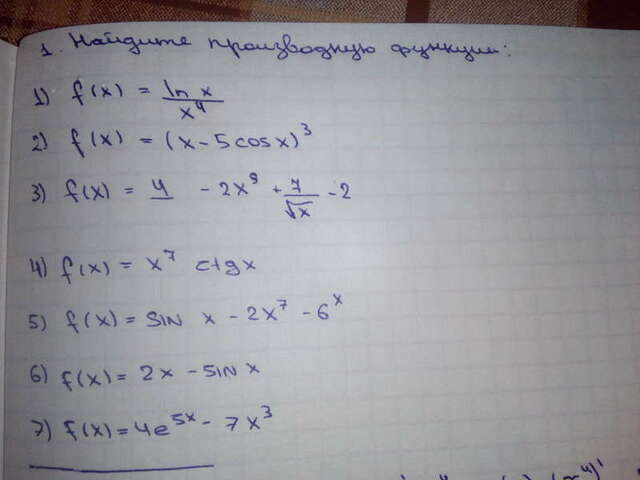 1. Найдите производную функции:
1) f(x) = ln x / x⁴
2) f(x) = (x - 5 cos x)³
3) f(x) = 4 - 2x⁹ + 7/√x - 2
4) f(x) = x⁷ ctg x
5) f(x) = sin x - 2x⁷ - 6ˣ
6) f(x) = 2x - sin x
7) f(x) = 4e⁵ˣ - 7x³
(x⁴)'